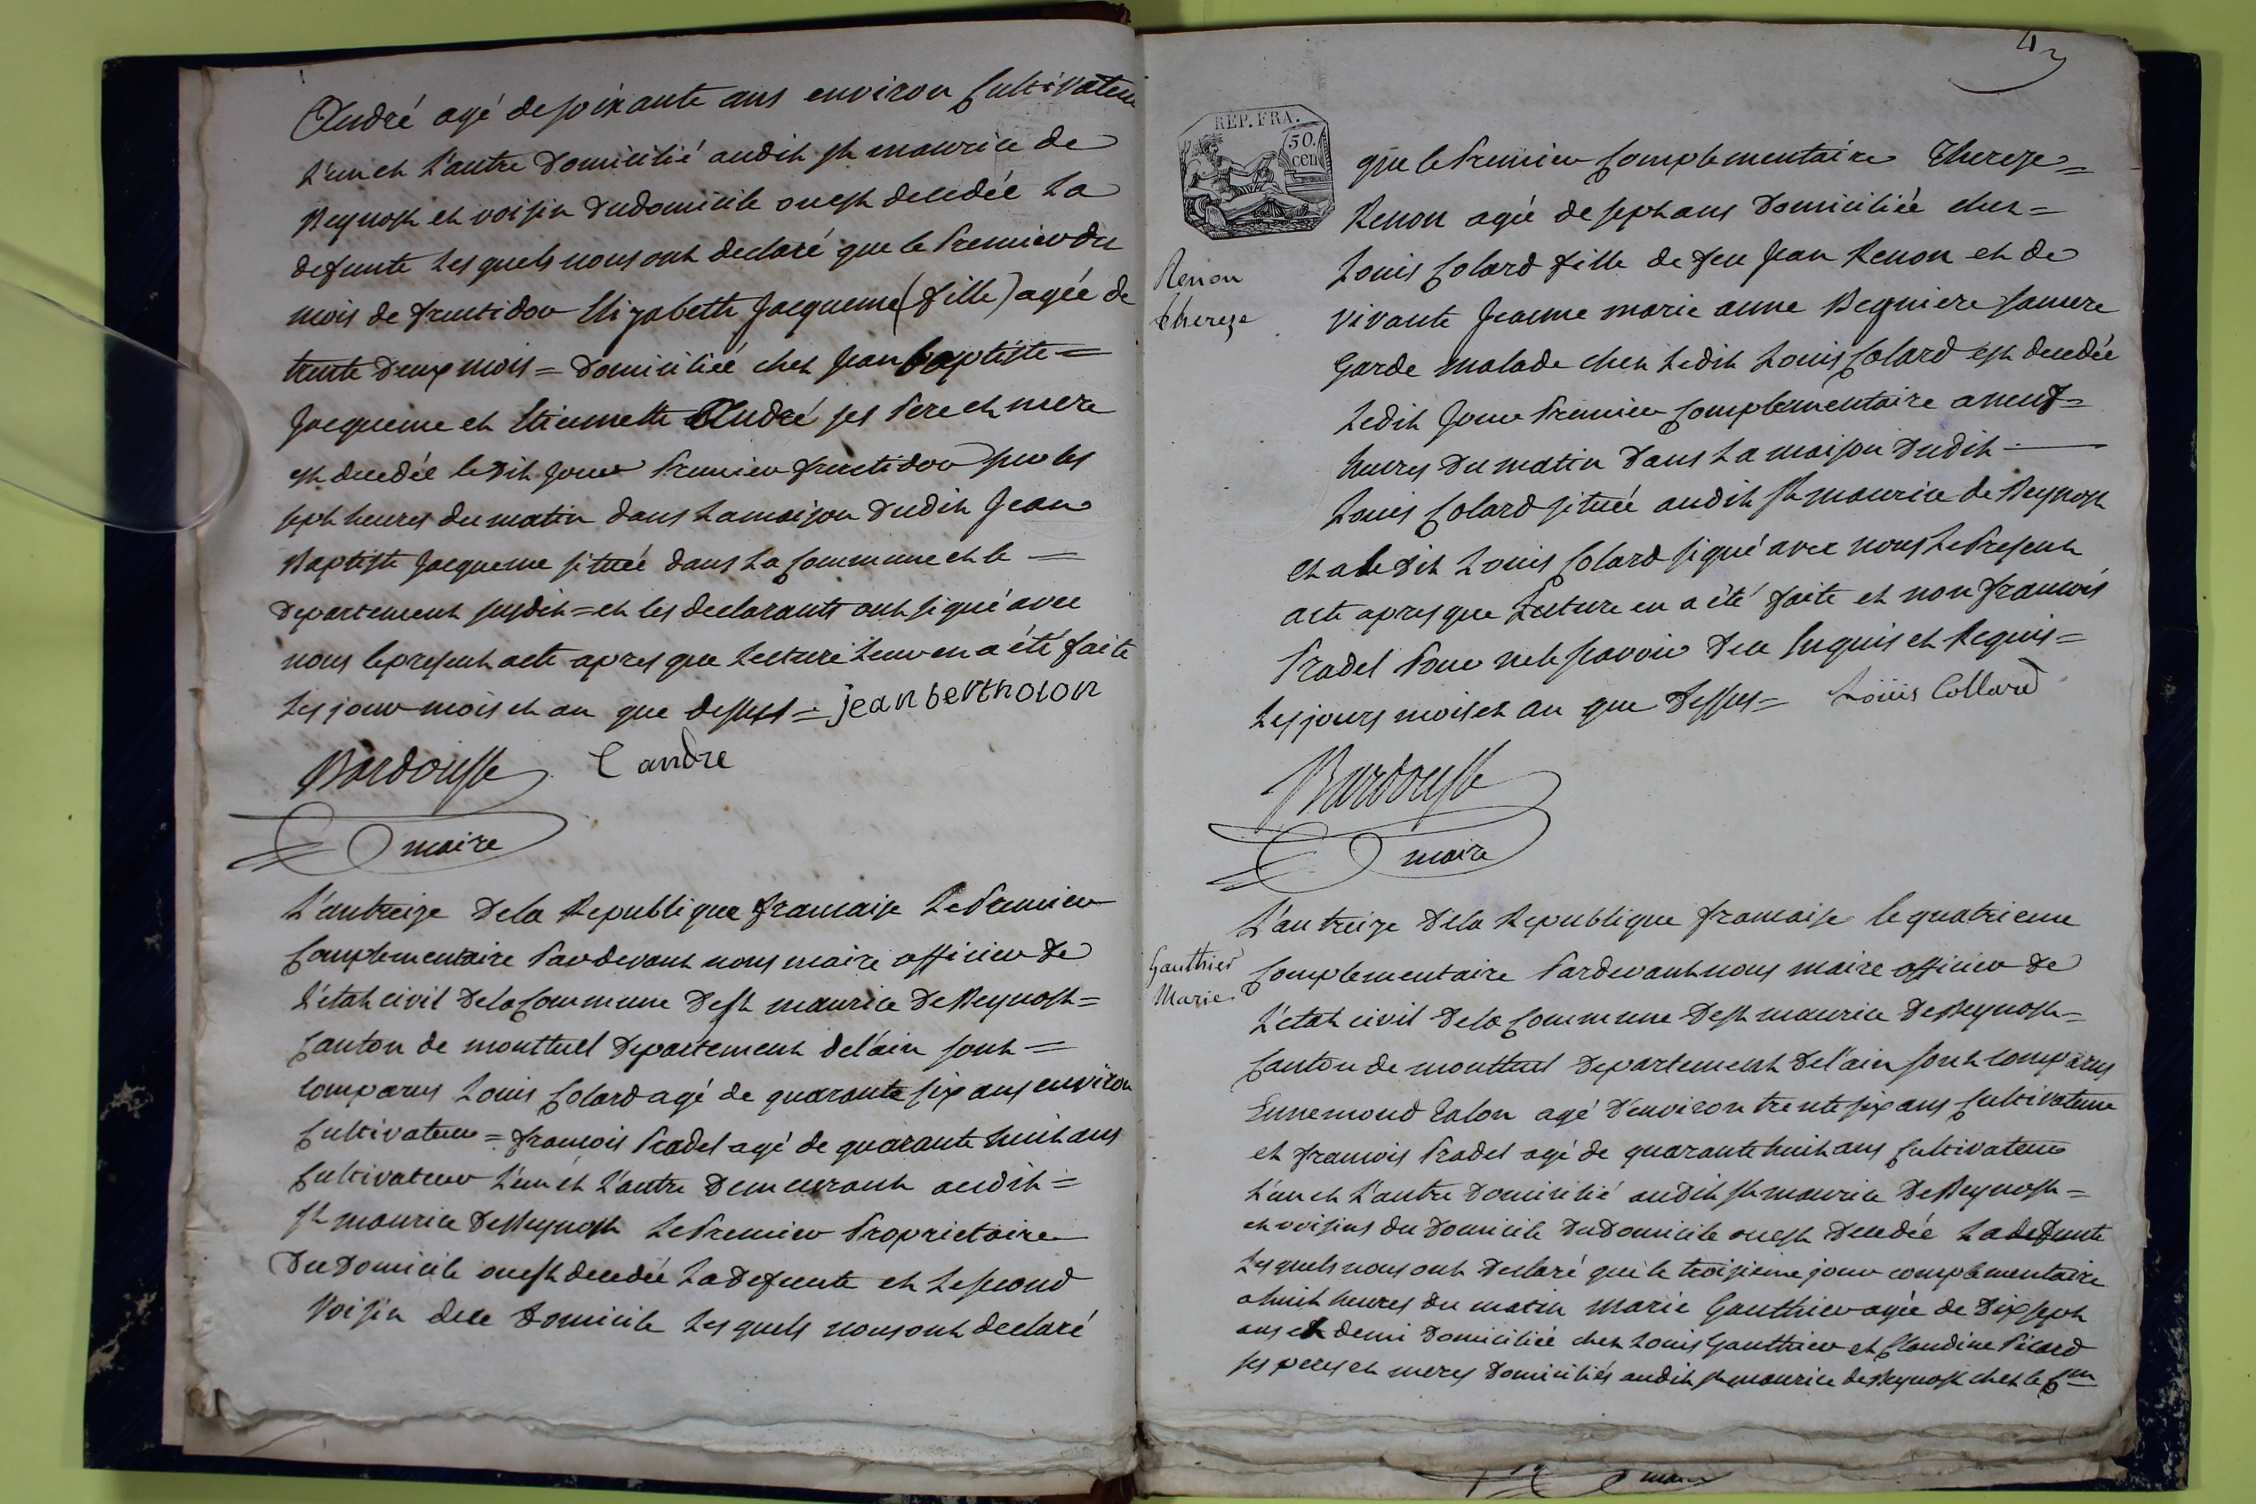 André agé de soixante ans environ Cultivateur
L'un et L'autre Domicilié audit st maurice de
Beynost et voisin du domicile ou est decedée La
defunte Les quels nous ont declaré que le Premier du
mois de fructidor Elizabeth Jacqueme (fille) agée de
trente deux mois = Domiciliée chez Jean baptiste =
Jacqueme et Etiennette André ses Pere et mere
est decedée le dit jour Premier fructidor sur les
sept heures du matin dans La maison Dudit Jean
Baptiste Jacqueme située dans La Commune et le =
Departement susdit = et les declarants ont signé avec
nous le present acte apres que Lecture Leur en a été faite
Les jour mois et an que dessus = jean bertholon
Bardousse C andre
maire
L'an treize De la Republique francaise Le Premier
Complementaire Pardevant nous maire officier de
L'état civil De la Commune De st maurice De Beynost =
Canton de montluel Departement de l'ain sont =
comparus Louis Colard agé de quarante six ans environ
Cultivateur = francois Pradel agé de quarante huit ans
Cultivateur L'un et L'autre Demeurant audit =
st maurice De Beynost Le Premier Proprietaire
Du Domicile ou est decedée La Defunte et Le second
Voisin dece Domicile Les quels nous ont declaré
43
REP. FRA.
50.
cen
Renon
thereze
que le Premier Complementaire Thereze =
Renon agée de sept ans Domiciliée chez =
Louis Colard fille de feu Jean Renon et de
vivante Jeanne marie anne Begniere sa mere
Garde malade chez Ledit Louis Colard est decedée
Ledit Jour Premier Complementaire a neuf =
heures Du matin Dans La maison Dudit
Louis Colard située audit st maurice de Beynost
et a le dit Louis Colard signé avec nous Le Present
acte apres que Lecture en a été faite et non francois
Pradel Pour ne le scavoir De ce Enquis et Requis =
Les jours mois et an que Dessus = Loüis Collard
Bardousse
maire
Gauthier
Marie
L'an treize De la Republique francaise le quatrieme
Complementaire Pardevant nous maire officier de
L'état civil De la Commune De st maurice De Beynost =
Canton de montluel Departement De l'ain sont comparus
Ennemond Talon agé D'environ trente six ans Cultivateur
et francois Pradel agé de quarante huit ans Cultivateur
L'un et L'autre Domicilié audit st maurice De Beynost =
et voisins du Domicile Du Domicile ou est Decedée La defunte
Les quels nous ont Declaré que le troisieme jour complementaire
a huit heures du matin Marie Gauthier agée de Dix sept
ans et demi Domiciliée chez Louis Gauthier et Claudine Picard
ses peres et meres Domiciliés audit st maurice de Beynost chez le